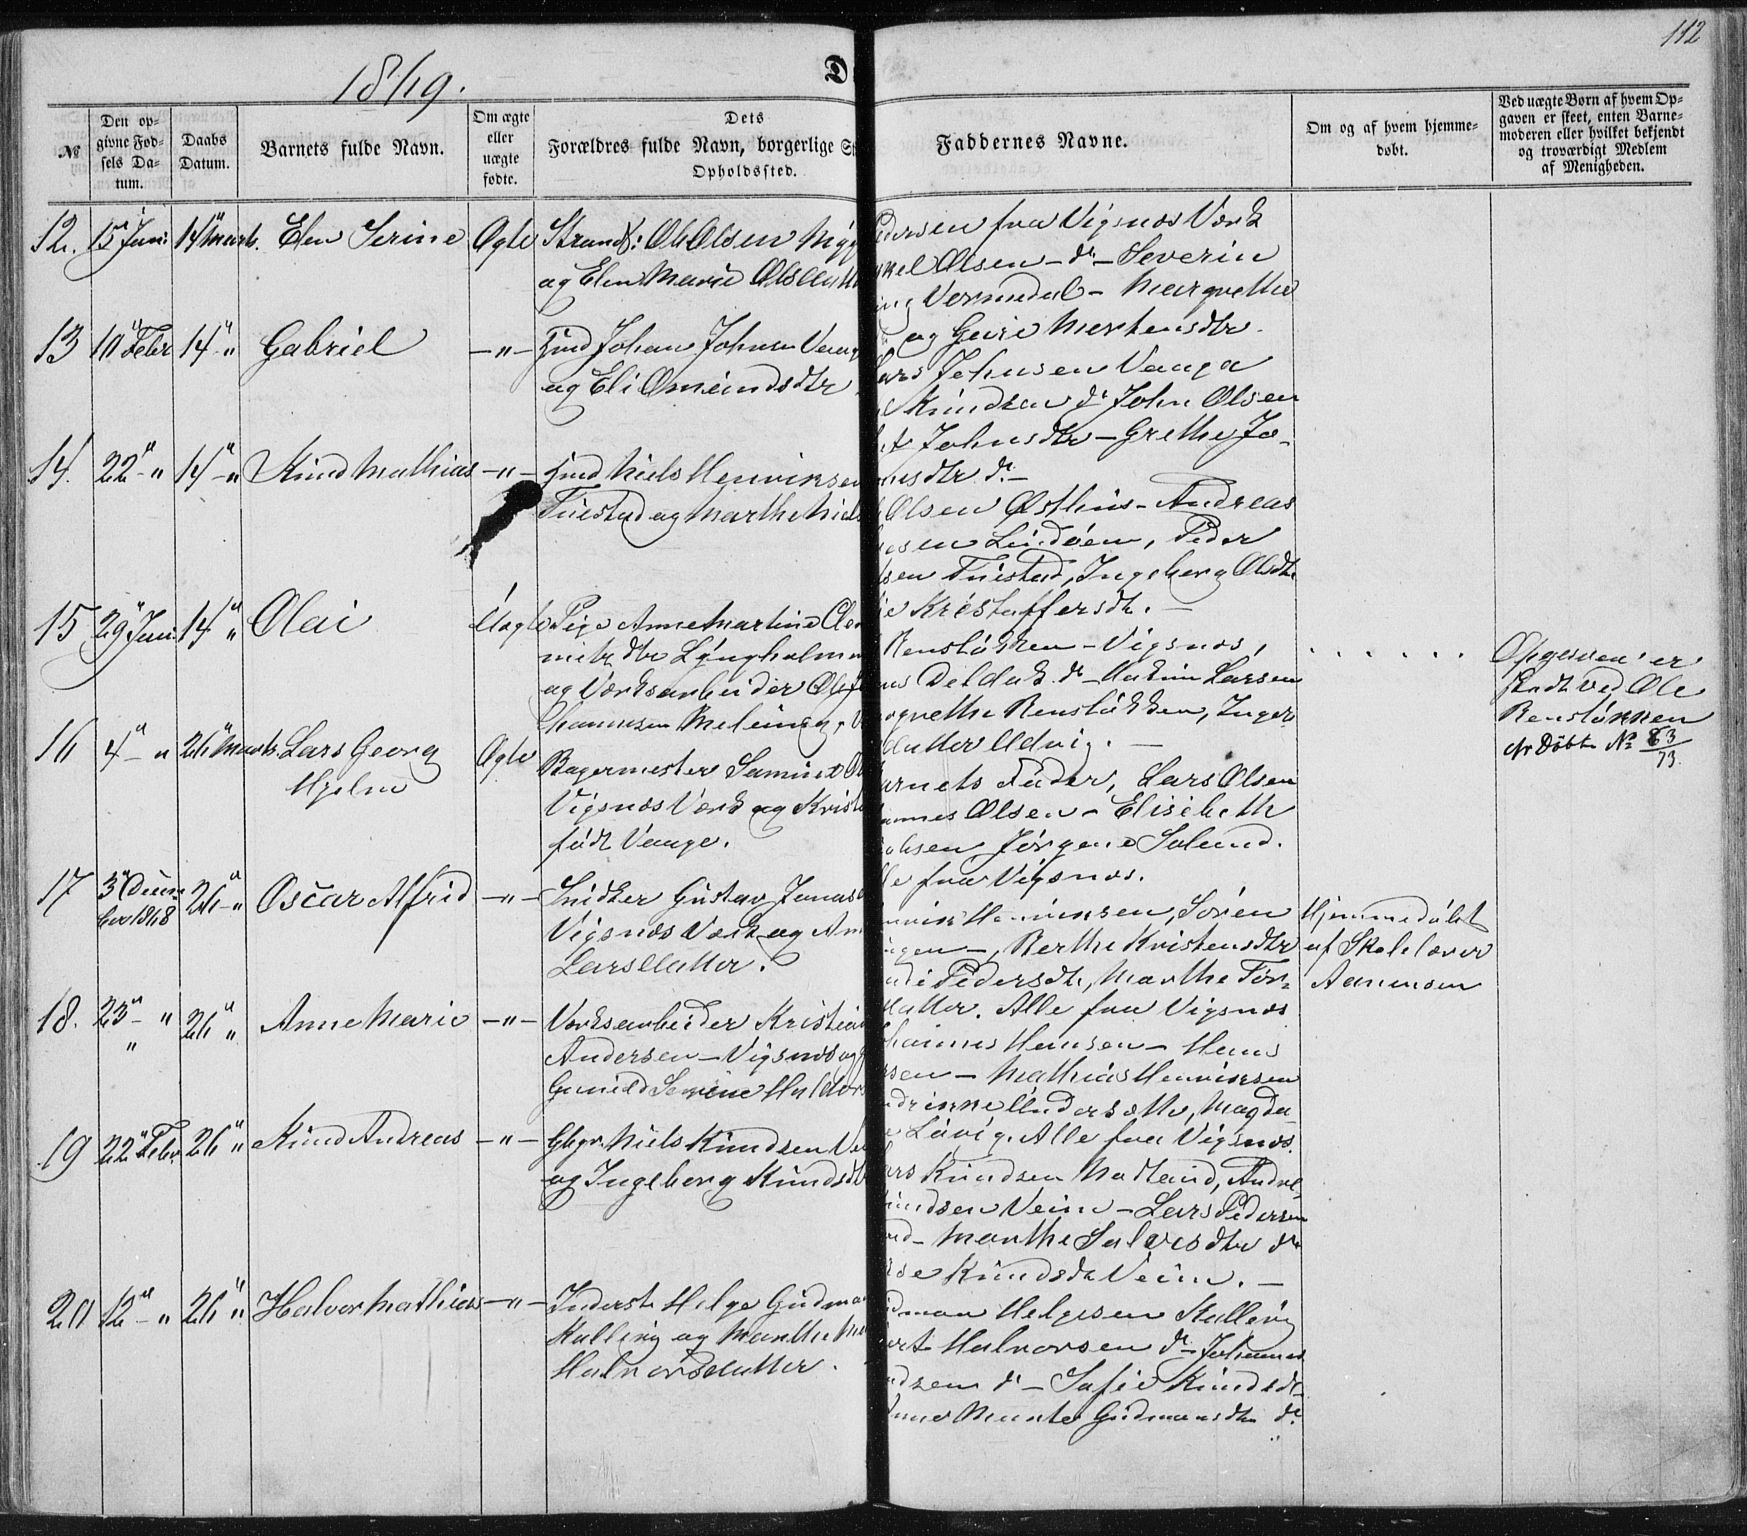 112
1869.
D
№
Den op-
givne Fød-
sels Da-
tum.
Daabs
Datum.
Barnets fulde Navn.
Om ægte
eller
uægte
fødte.
Dets
Forældres fulde Navn, borgerlige St
Opholdssted.
Faddernes Navne.
Om og af hvem hjemme-
døbt.
Ved uægte Børn af hvem Op-
gaven er skeet, enten Barne-
moderen eller hvilket bekjendt
og troværdigt Medlem
af Menigheden.
12. 15" Jan: 14" Marts. Elen Serine Ægte Strands: Ole Olsen
og Elen Marie Olsdatt
edersen fra Vigsnæs Værk
kel Olsen - do - Severin
Vormedal - Margrethe
og Guri Mortensdtr.
13 10" Febr 14" " Gabriel -"- Gmd Johan Johnsen Veag
og Eli Omundsdtr
Lars Johnsen Veaga
Knudsen do John Olsen
Johnsdtr - Grethe Jo-
nsdtr do. -
14. 22" - " 14" - " Knud Mathias -"- Gmd Niels Henriksen
Tuestad og Marthe Niel
Olsen Østhus - Andreas
sen Lindøen, Peder
sen Tuestad, Ingeborg Olsdtr
ie Kristoffersdtr. -
15 29" Jan: 14" " Olai Uægte Pige Anne Martine Cle
metsdtr Lyngholmen
og Værksarbeider Ole
hannesen Meling,
Renstøkken - Vigsnæs,
us Deldak do - Martin Larsen
agrethe Renstøkken, Inger
datter Udvig. -
. . . . . .
Opgaven er
skedt ved Ole
Renstønnen
cfr Døbte № 83/73.
16 4" - " 26" Marts. Lars Georg
Hjelm
Ægte
Bagermester Samuel O
Vigsnæs Værk og Krist
født Veage.
arnets Fader, Lars Olsen
annes Olsen - Elisebeth
obsen Jørgene Solund.
lle fra Vigsnæs.
17 3" Decem
ber 1868 26" - " Oscar Alfred -"- Snidker Gustav Jonas
Vigsnæs Værk og An
Larsdatter.
enrik Heninsen, Søren
ngen -, Berthe Kristensdtr
Pedersdtr, Marthe Tor-
datter. Alle fra Vigsnæs
Hjemmedøbt
af Skolelærer
Aanensen
18. 23" - "
" 26" " Anne Marie -"- Værksarbeider Kristian
Andersen - Vigsnæs og
Gunild Serine Haldors
hannes Hansen - Hans
rsen - Mathias Henriksen
ndrinne Undersætte, Magda
e Løvig. Alle fra Vigsnæs.
19 22" Febr. 26" " Knud Andreas -"- Gbgr. Niels Knudsen Ve
og Ingeborg Knudsdt
ars Knudsen Hatland, Andre-
nudsen Veim - Lars Pedersen
nd - Marthe Salvesdtr do
se Knudsdtr Veim. -
20 12" - " 26" " Halvor Mathias -"- Inderst Helge Gudman
Stalleng og Marthe Ma
Halvorsdatter.
dman Helgesen Stalleng
ert Halvorsen do - Johannes
dsen do - Sofie Knudsdtr
Anne Marte Gudmansdtr do.